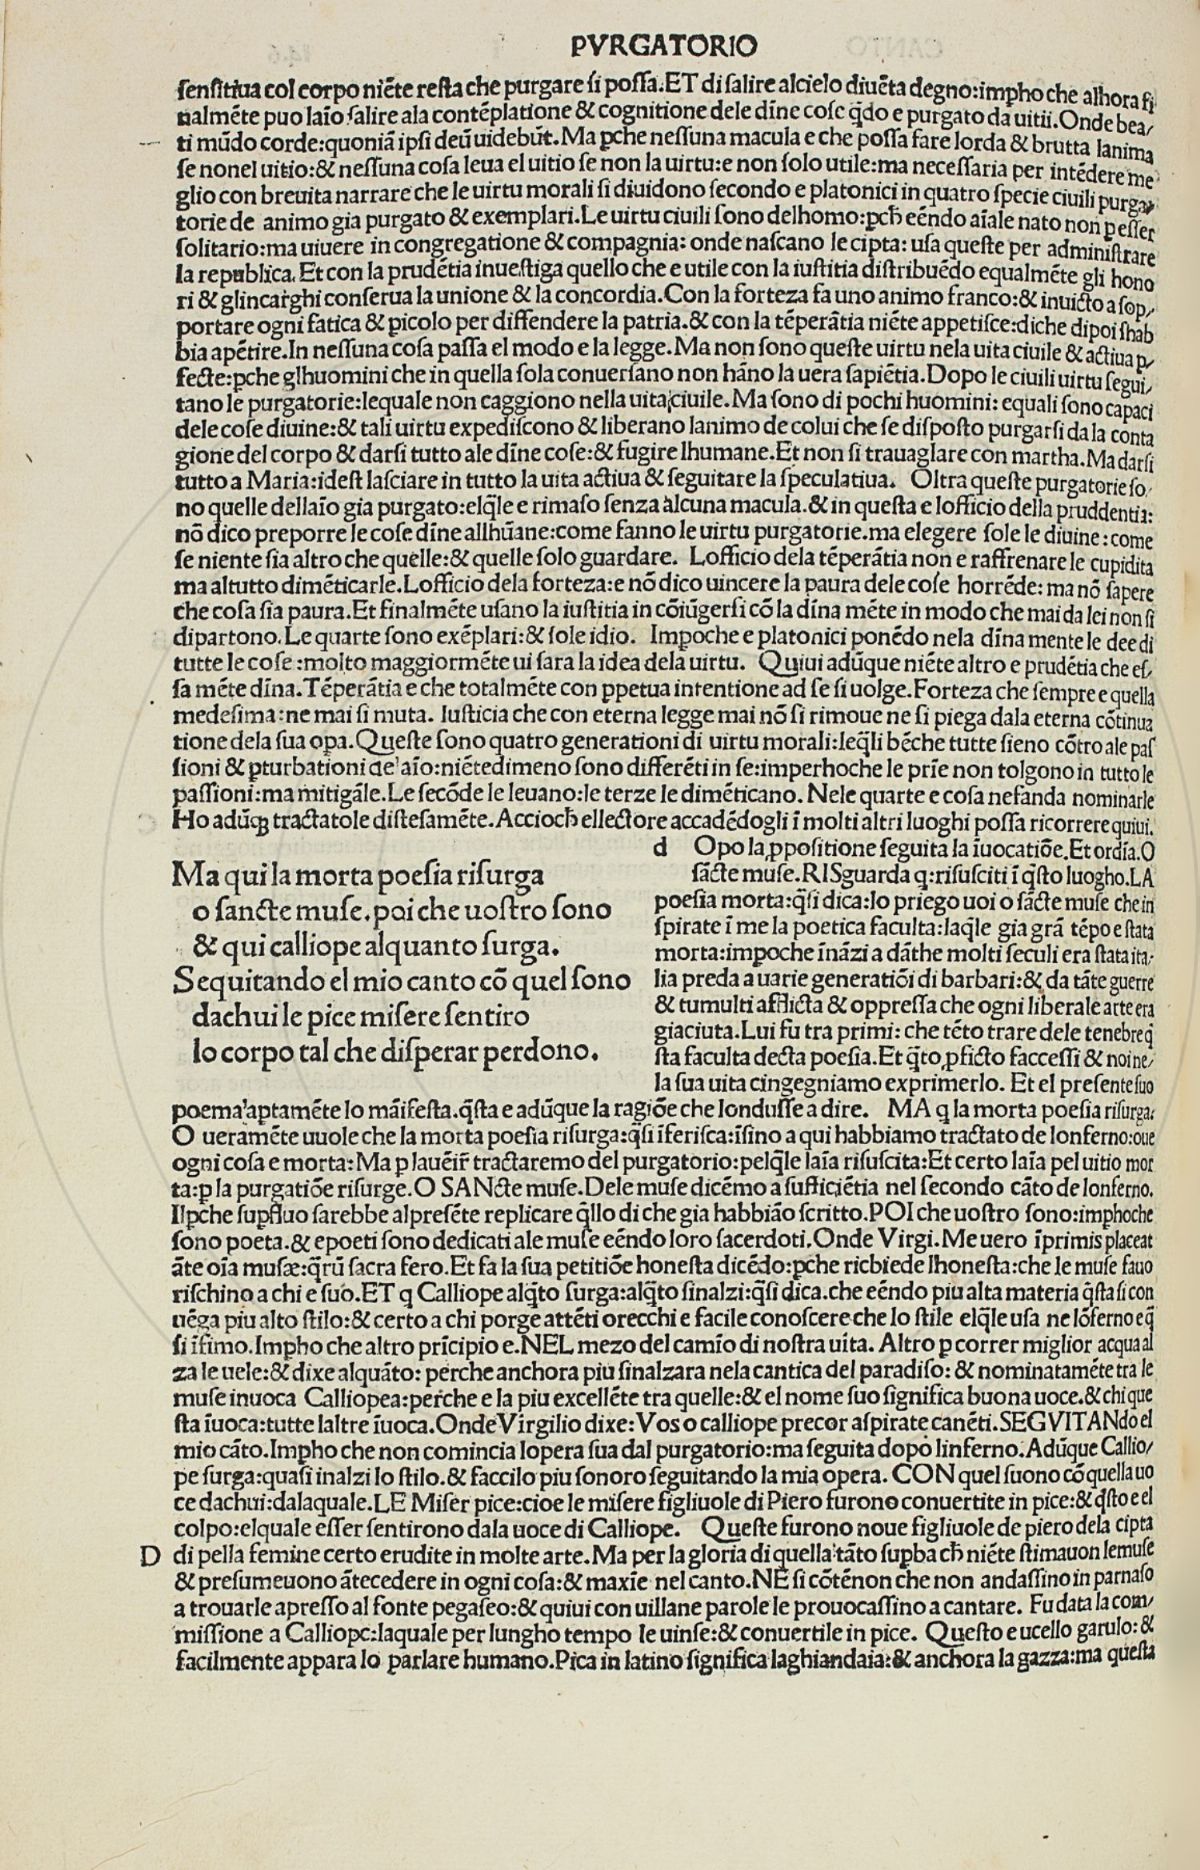 PVRGATORIO
ſenſitiua col corpo niẽte reſta che purgare ſi poſſa.ET di ſalire alcielo diuẽta degno:impho che alhora fi
nalmẽte puo laĩo ſalire ala contẽplatione & cognitione dele dĩne coſe q̃do e purgato da uitii.Onde bea/
ti mũdo corde:quoniã ipſi deũ uidebũt.Ma pche neſſuna macula e che poſſa fare lorda & brutta lanima
ſe nonel uitio:& neſſuna coſa leua el uitio ſe non la uirtu:e non ſolo utile:ma neceſſaria per intẽdere me
glio con breuita narrare che le uirtu morali ſi diuidono ſecondo e platonici in quatro ſpecie ciuili purga/
torie de animo gia purgato & exemplari.Le uirtu ciuili ſono delhomo:pch̃ eẽndo aĩale nato non p eſſer
ſolitario:ma uiuere in congregatione & compagnia: onde naſcano le cipta: uſa queſte per adminiſtrare
la republica. Et con la prudẽtia inueſtiga quello che e utile con la iuſtitia diſtribuẽdo equalmẽte gli hono
ri & glincarghi conſerua la unione & la concordia.Con la forteza fa uno animo franco:& inuicto a ſop/
portare ogni fatica & picolo per diffendere la patria.& con la tẽperãtia niẽte appetiſce:diche dipoi ſhab
bia apẽtire.In neſſuna coſa paſſa el modo e la legge.Ma non ſono queſte uirtu nela uita ciuile & actiua p/
fecte:pche glhuomini che in quella ſola conuerſano non hãno la uera ſapiẽtia.Dopo le ciuili uirtu ſegui/
tano le purgatorie:lequale non caggiono nella uita ciuile.Ma ſono di pochi huomini: equali ſono capaci
dele coſe diuine:& tali uirtu expediſcono & liberano lanimo de colui che ſe diſpoſto purgarſi da la conta
gione del corpo & darſi tutto ale dĩne coſe:& fugire lhumane.Et non ſi trauaglare con martha.Ma darſi
tutto a Maria:ideſt laſciare in tutto la uita actiua & ſeguitare la ſpeculatiua. Oltra queſte purgatorie ſo/
no quelle dellaĩo gia purgato:elq̃le e rimaſo ſenza alcuna macula.& in queſta e lofficio della pruddentia:
nõ dico preporre le coſe dĩne allhũane:come fanno le uirtu purgatorie.ma elegere ſole le diuine:come
ſe niente ſia altro che quelle:& quelle ſolo guardare. Lofficio dela tẽperãtia non e raffrenare le cupidita
ma altutto dimẽticarle.Lofficio dela forteza:e nõ dico uincere la paura dele coſe horrẽde: ma nõ ſapere
che coſa ſia paura.Et finalmẽte uſano la iuſtitia in cõiũgerſi cõ la dĩna mẽte in modo che mai da lei non ſi
dipartono.Le quarte ſono exẽplari:& ſole idio. Impoche e platonici ponẽdo nela dĩna mente le dee di
tutte le coſe:molto maggiormẽte ui ſara la idea dela uirtu. Quiui adũque niẽte altro e prudẽtia che eſ/
ſa mẽte dĩna.Tẽperãtia e che totalmẽte con ppetua intentione ad ſe ſi uolge.Forteza che ſempre e quella
medeſima:ne mai ſi muta. Iuſticia che con eterna legge mai nõ ſi rimoue ne ſi piega dala eterna cõtinua
tione dela ſua opa.Queſte ſono quatro generationi di uirtu morali:leq̃li bẽche tutte ſieno cõtro ale paſ
ſioni & pturbationi de aĩo:niẽtedimeno ſono differẽti in ſe:imperhoche le prĩe non tolgono in tutto le
paſſioni:ma mitigãle.Le ſecõde le leuano:le terze le dimẽticano. Nele quarte e coſa nefanda nominarle
Ho adũq; tractatole diſteſamẽte.Accioch̃ ellectore accadẽdogli ĩ molti altri luoghi poſſa ricorrere quiui.
Ma qui la morta poeſia riſurga
o ſancte muſe.poi che uoſtro ſono
& qui calliope alquanto ſurga.
Sequitando el mio canto cõ quel ſono
dachui le pice miſere ſentiro
lo corpo tal che diſperar perdono.
d Opo la ppoſitione ſeguita la ĩuocatiõe.Et ordĩa.O
ſãcte muſe.RISguarda q:riſuſciti ĩ q̃ſto luogho.LA
poeſia morta:q̃ſi dica:Io priego uoi o ſãcte muſe che in
ſpirate ĩ me la poetica faculta:laq̃le gia grã tẽpo e ſtata
morta:impoche ĩnãzi a dãthe molti ſeculi era ſtata ita/
lia preda a uarie generatiõi di barbari:& da tãte guerre
& tumulti afflicta & oppreſſa che ogni liberale arte era
giaciuta.Lui fu tra primi: che tẽto trare dele tenebre q̃
ſta faculta decta poeſia.Et q̃to pficto faceſſi & noi ne/
la ſua uita cingegniamo exprimerlo. Et el preſente ſuo
poema aptamẽte lo mãifeſta.q̃ſta e adũque la ragiõe che londuſſe a dire. MA q la morta poeſia riſurga:
O ueramẽte uuole che la morta poeſia riſurga:q̃ſi ĩferiſca:ĩſino a qui habbiamo tractato de lonferno:oue
ogni coſa e morta:Ma p lauẽir̃ tractaremo del purgatorio:pelq̃le laĩa riſuſcita:Et certo laĩa pel uitio mor
ta:p la purgatiõe riſurge.O SANcte muſe.Dele muſe dicẽmo a ſufficiẽtia nel ſecondo cãto de lonferno.
Ilpche ſupfluo ſarebbe alpreſẽte replicare q̃llo di che gia habbião ſcritto.POI che uoſtro ſono:imphoche
ſono poeta.& epoeti ſono dedicati ale muſe eẽndo loro ſacerdoti.Onde Virgi.Me uero ĩprimis placeat
ãte oĩa muſæ:q̃rũ ſacra fero.Et fa la ſua petitiõe honeſta dicẽdo:pche richiede lhoneſta:che le muſe fauo
riſchino a chi e ſuo.ET q Calliope alq̃to ſurga:alq̃to ſinalzi:q̃ſi dica.che eẽndo piu alta materia q̃ſta ſi con
uẽga piu alto ſtilo:& certo a chi porge attẽti orecchi e facile conoſcere che lo ſtile elq̃le uſa ne lõferno e q̃
ſi ĩfimo.Impho che altro prĩcipio e.NEL mezo del camĩo di noſtra uita. Altro p correr miglior acqua al
za le uele:& dixe alquãto: perche anchora piu ſinalzara nela cantica del paradiſo: & nominatamẽte tra le
muſe inuoca Calliopea:perche e la piu excellẽte tra quelle:& el nome ſuo ſignifica buona uoce.& chi que
ſta ĩuoca:tutte laltre ĩuoca.Onde Virgilio dixe:Vos o calliope precor aſpirate canẽti.SEGVITANdo el
mio cãto.Impho che non comincia lopera ſua dal purgatorio:ma ſeguita dopo linferno.Adũque Callio/
pe ſurga:quaſi inalzi lo ſtilo.& faccilo piu ſonoro ſeguitando la mia opera. CON quel ſuono cõ quella uo
ce dachui:dalaquale.LE Miſer pice:cioe le miſere figliuole di Piero furono conuertite in pice:& q̃ſto e el
colpo:elquale eſſer ſentirono dala uoce di Calliope. Queſte furono noue figliuole de piero dela cipta
D di pella femine certo erudite in molte arte.Ma per la gloria di quella tãto ſupba ch̃ niẽte ſtimauon lemuſe
& preſumeuono ãtecedere in ogni coſa:& maxĩe nel canto.NE ſi cõtẽnon che non andaſſino in parnaſo
a trouarle apreſſo al fonte pegaſeo:& quiui con uillane parole le prouocaſſino a cantare. Fu data la com/
miſſione a Calliope:laquale per lungho tempo le uinſe:& conuertile in pice. Queſto e ucello garulo: &
facilmente appara lo parlare humano.Pica in latino ſignifica laghiandaia:& anchora la gazza:ma queſta